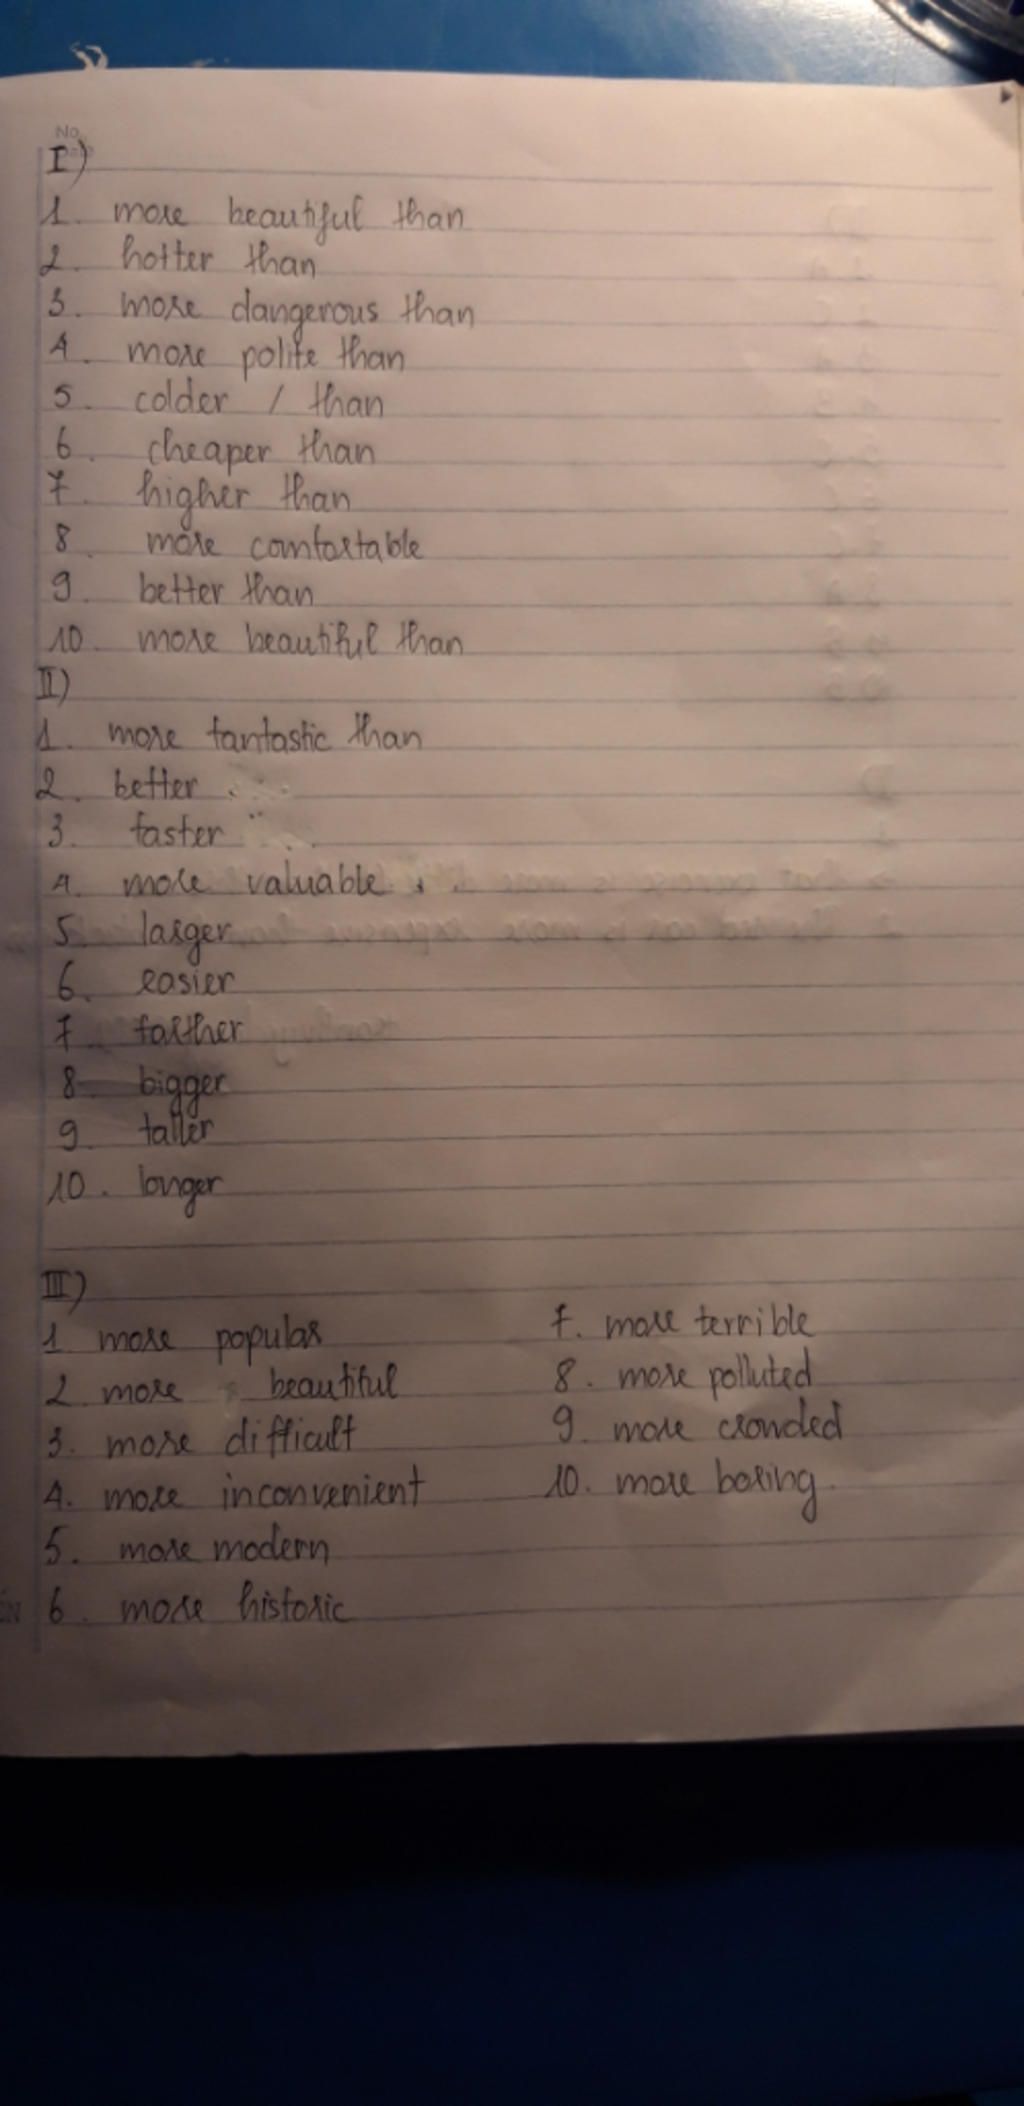 No.
I)
1. more beautiful than
2. hotter than
3. more dangerous than
4. more polite than
5. colder / than
6. cheaper than
7. higher than
8. more comfortable
9. better than
10. more beautiful than
II)
1. more fantastic than
2. better
3. faster
4. more valuable
5. larger
6. easier
7. farther
8. bigger
9. taller
10. longer
III)
1 more popular
2 more beautiful
3. more difficult
4. more inconvenient
5. more modern
6. more historic
7. more terrible
8. more polluted
9. more crowded
10. more boring